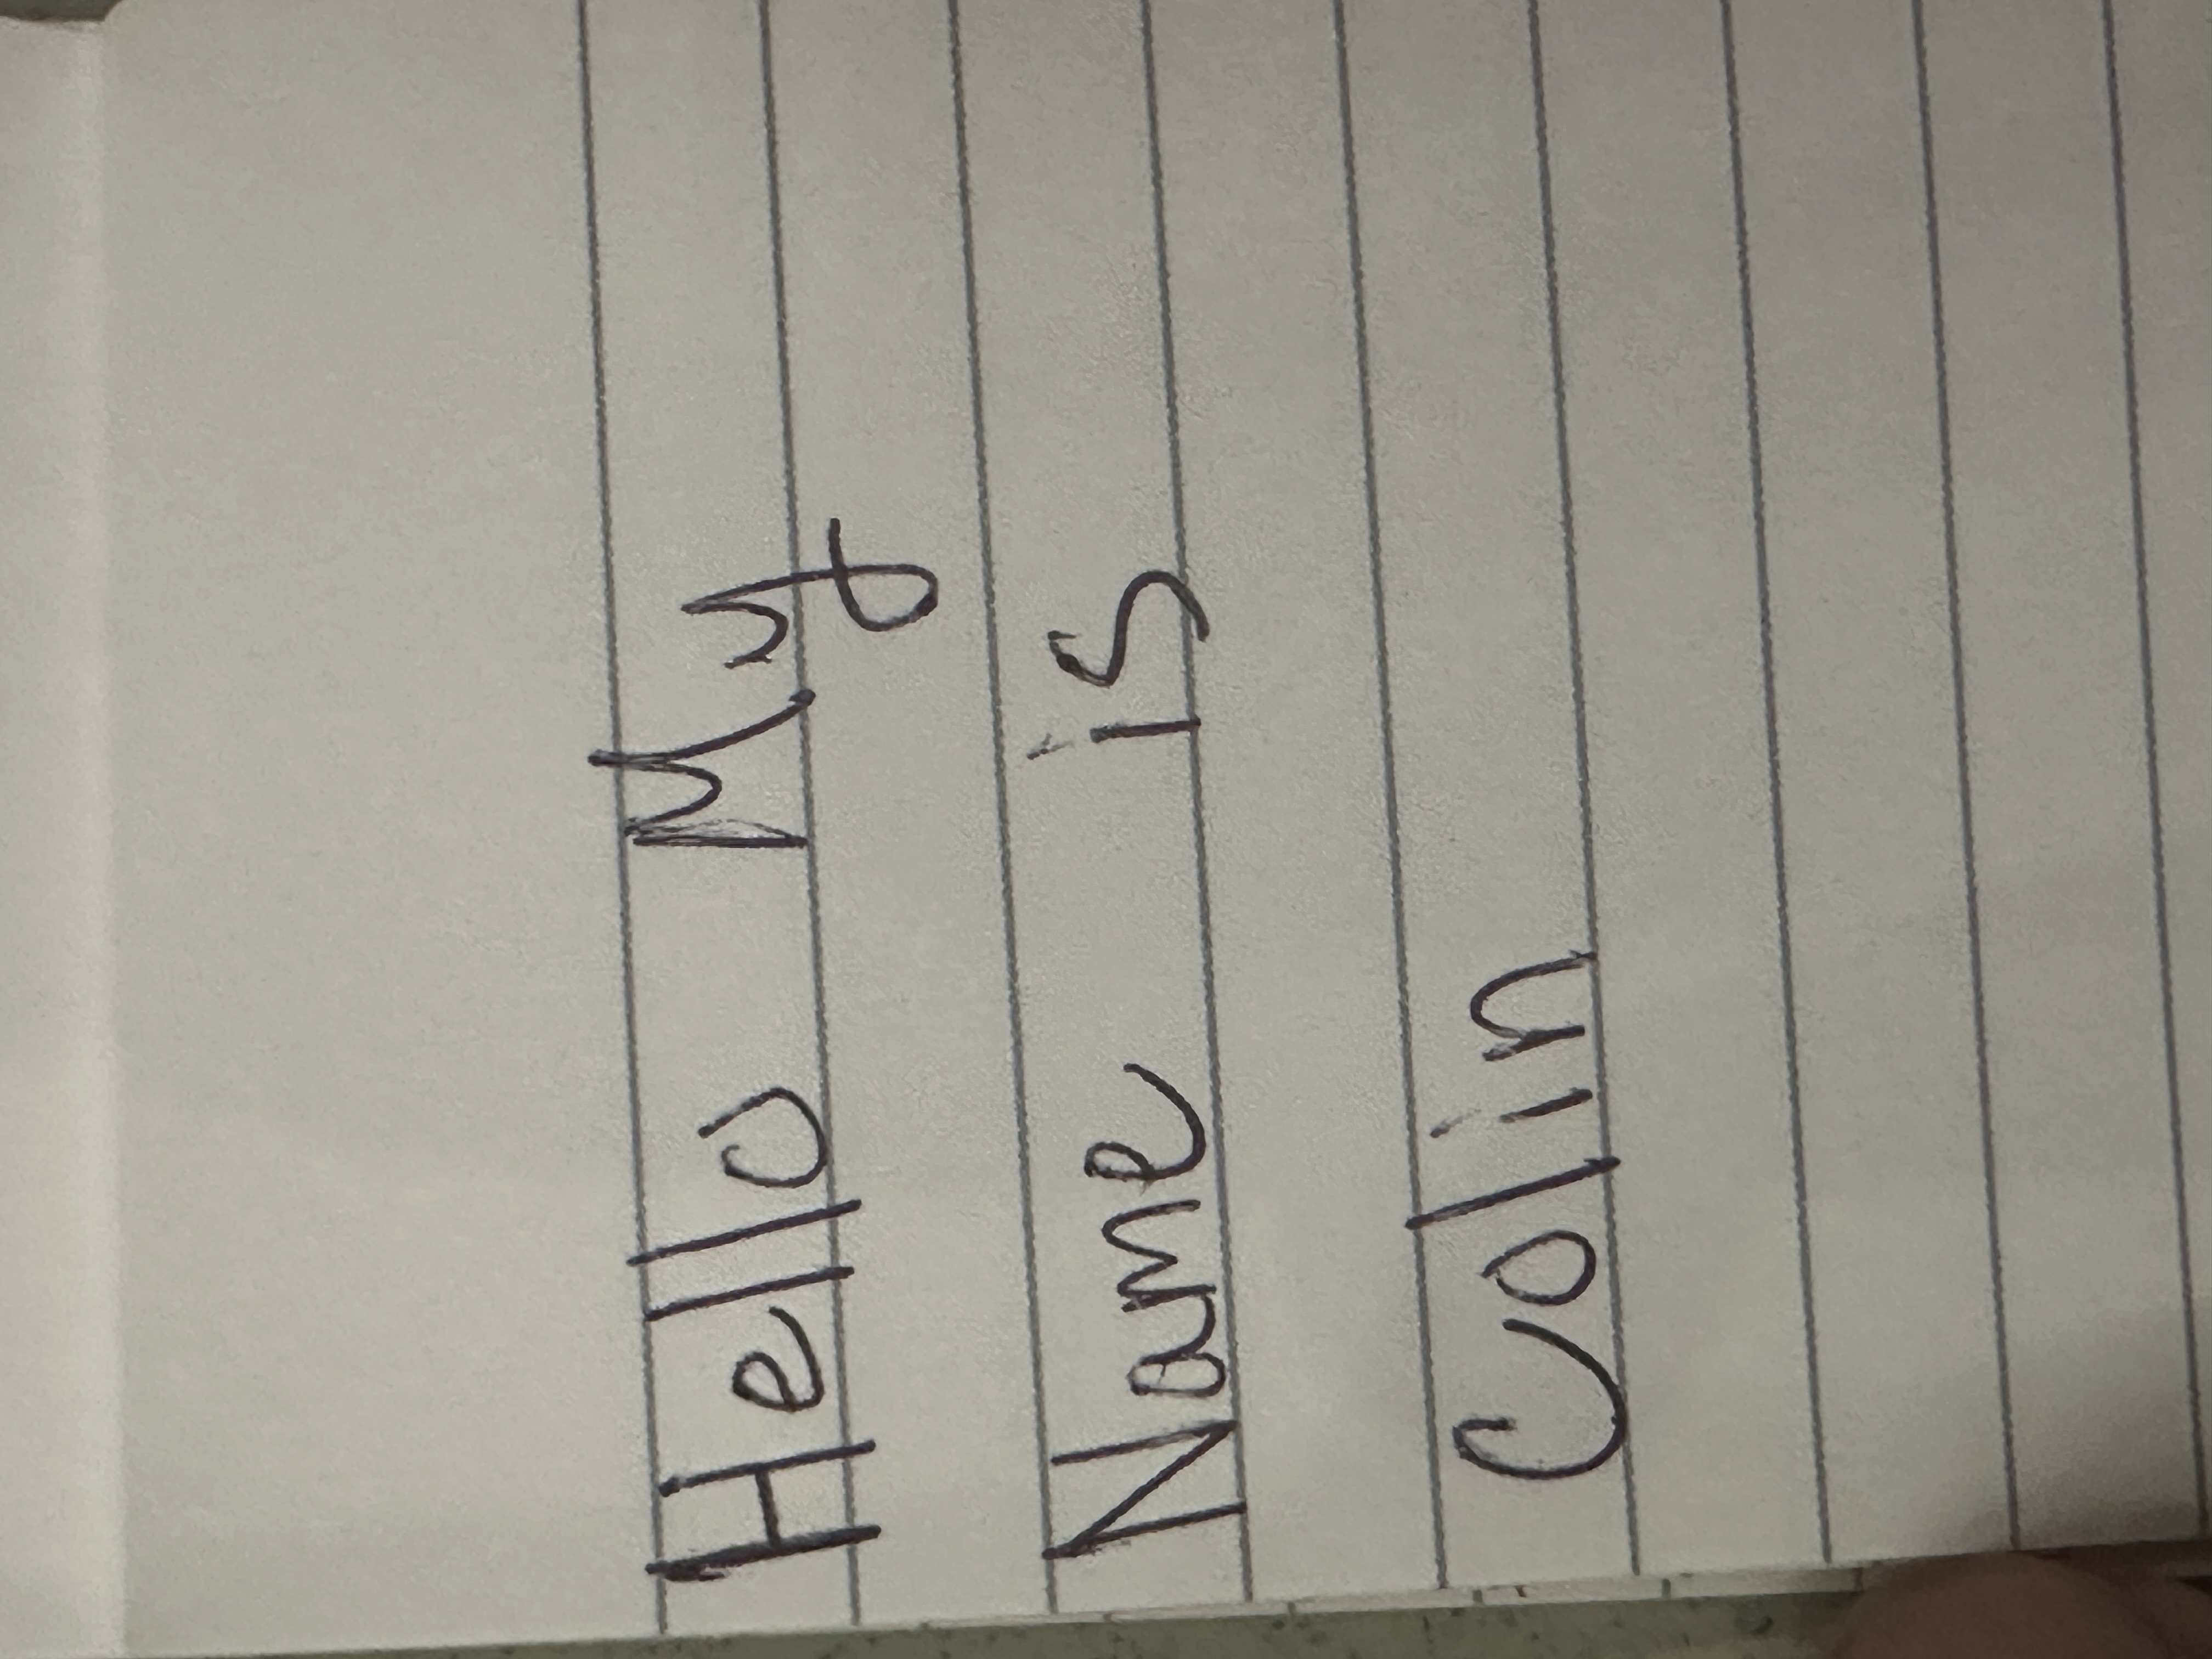 Hello My
Name is
Colin